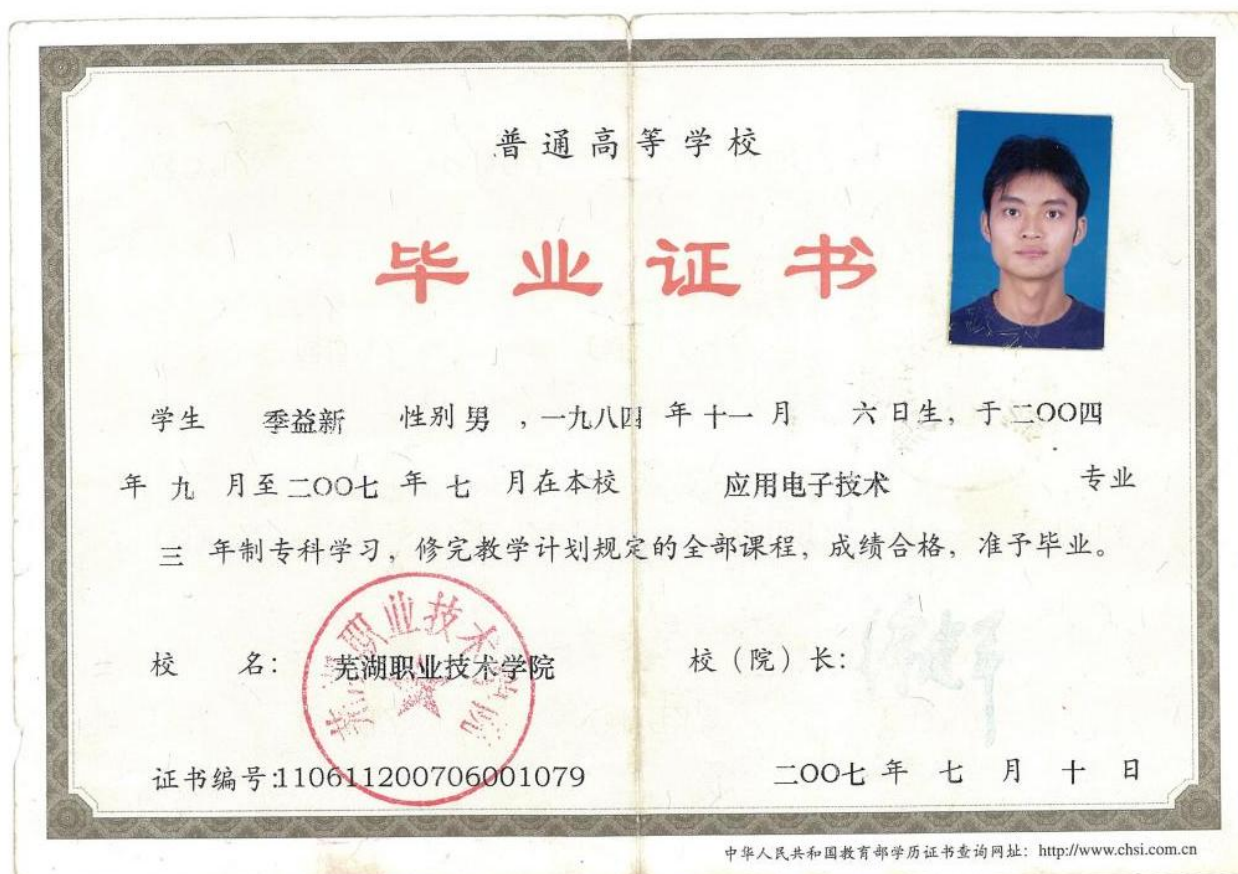 普通高等学校
毕业证书
学生 季益新 性别 男 ，一九八四 年 十一 月 六 日生，于 二〇〇四
年 九 月至 二〇〇七 年 七 月在本校 应用电子技术 专业
三 年制专科学习，修完教学计划规定的全部课程，成绩合格，准予毕业。
芜湖职业技术学院
校 名： 芜湖职业技术学院 校（院）长：
证书编号:110611200706001079 二〇〇七 年 七 月 十 日
中华人民共和国教育部学历证书查询网址：http://www.chsi.com.cn